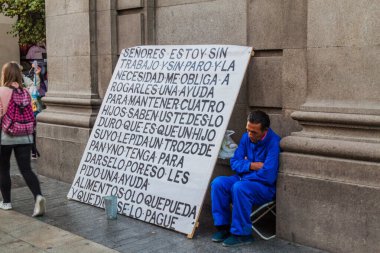 SEÑORES ESTOY SIN
TRABAJO Y SIN PARO Y LA
NECESIDAD ME OBLIGA A
ROGARLES UNA AYUDA
PARA MANTENER CUATRO
HIJOS SABEN USTEDES LO
DURO QUE ES QUE UN HIJO
SUYO LE PIDA UN TROZO DE
PAN Y NO TENGA PARA
DARSELO POR ESO LES
PIDO UNA AYUDA
ALIMENTOS O LO QUE PUEDA
Y QUE DIOS SE LO PAGUE